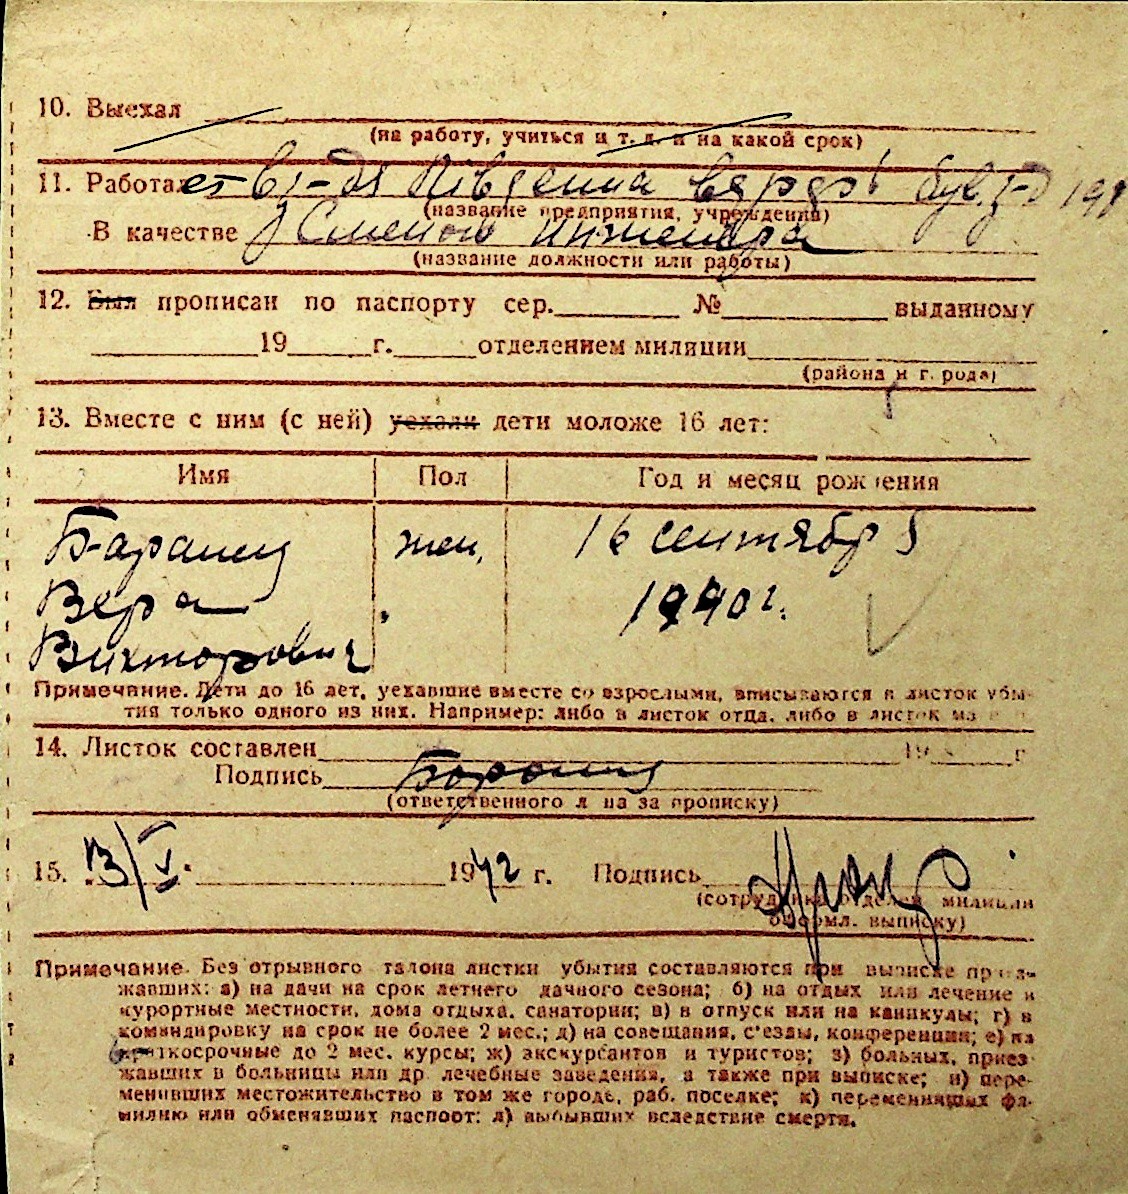 10. Выехал
(на работу, учиться и т. д. и на какой срок)
11. Работает
(название предприятия, учреждения)
В качестве Сменого инженера
(название должности или работы)
12. Был прописан по паспорту сер. № выданному
19 г. отделением милиции
(района и города)
13. Вместе с ним (с ней) уехали дети моложе 16 лет:
Имя Пол Год и месяц рождения
жен. 16 сентября
Вера 1940 г.
Викторовна
Примечание. Дети до 16 лет, уехавшие вместе со взрослыми, вписываются в листок убы-
тия только одного из них. Например: либо в листок отца, либо в листок
14. Листок составлен 19 г
Подпись
(ответственного лица за прописку)
15. 13/V. 1942 г. Подпись
(сотрудника отделен. милиции
оформл. выписку)
Примечание. Без отрывного талона листки убытия составляются при выписке
жавших: а) на дачи на срок летнего дачного сезона; б) на отдых или лечение в
курортные местности, дома отдыха, санатории; в) в отпуск или на каникулы; г) в
командировку на срок не более 2 мес.; д) на совещания, с'езды, конференции; е) на
краткосрочные до 2 мес. курсы; ж) экскурсантов и туристов; з) больных, приез-
жавших в больницы или др лечебные заведения, а также при выписке; и) пере-
менивших местожительство в том же городе, раб. поселке; к) переменивших фа-
милию или обменявших паспорт; л) выбывших вследствие смерти.